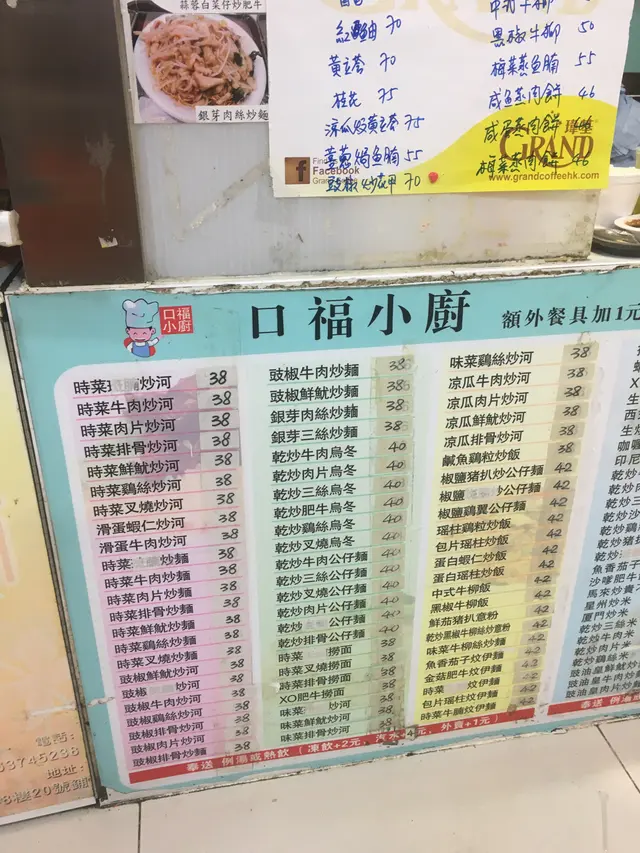 蒜蓉白菜仔炒肥牛
銀芽肉絲炒麵
紅豉油 70
黃立倉 70
桂花 75
涼瓜炆黃立倉 75
薑蔥焗魚腩 55
豉椒炒花甲 70
黑椒牛柳 50
梅菜蒸魚腩 55
咸魚蒸肉餅 46
咸蛋蒸肉餅 46
梅菜蒸肉餅 46
Facebook
GRAND
www.grandcoffeehk.com
口福小廚
口福小廚
額外餐具加1元
時菜 炒河 38
時菜牛肉炒河 38
時菜肉片炒河 38
時菜排骨炒河 38
時菜鮮魷炒河 38
時菜鷄絲炒河 38
時菜叉燒炒河 38
滑蛋蝦仁炒河 38
滑蛋牛肉炒河 38
時菜 炒麵 38
時菜牛肉炒麵 38
時菜肉片炒麵 38
時菜排骨炒麵 38
時菜鮮魷炒麵 38
時菜鷄絲炒麵 38
時菜叉燒炒麵 38
豉椒鮮魷炒河 38
豉椒 炒河 38
豉椒牛肉炒河 38
豉椒鷄絲炒河 38
豉椒肉片炒河 38
豉椒排骨炒麵 38
豉椒牛肉炒麵 38
豉椒鮮魷炒麵 38
銀芽肉絲炒麵 38
銀芽三絲炒麵 38
乾炒牛肉烏冬 40
乾炒肉片烏冬 40
乾炒三絲烏冬 40
乾炒肥牛烏冬 40
乾炒鷄絲烏冬 40
乾炒叉燒烏冬 40
乾炒牛肉公仔麵 40
乾炒三絲公仔麵 40
乾炒叉燒公仔麵 40
乾炒肉片公仔麵 40
乾炒 公仔麵 40
乾炒排骨公仔麵 40
時菜 撈麵 38
時菜叉燒撈麵 38
時菜排骨撈麵 38
XO肥牛撈麵 38
味菜 炒河 38
味菜鮮魷炒河 38
味菜排骨炒河 38
味菜鷄絲炒河 38
凉瓜牛肉炒河 38
凉瓜肉片炒河 38
凉瓜鮮魷炒河 38
凉瓜排骨炒河 38
鹹魚鷄粒炒飯 38
椒鹽猪扒炒公仔麵 42
椒鹽 炒公仔麵 42
椒鹽鷄翼公仔麵 42
瑤柱鷄粒炒飯 42
包片瑤柱炒飯 42
蛋白蝦仁炒飯 42
蛋白瑤柱炒飯 42
中式牛柳飯 42
黑椒牛柳飯 42
鮮茄猪扒意粉 42
乾炒黑椒牛柳絲炒意粉 42
味菜牛柳絲炒麵 42
魚香茄子炆伊麵 42
金菇肥牛炆伊麵 42
時菜 炆伊麵 42
包片瑤柱炆伊麵 42
時菜牛腩炆伊麵 42
西
咖喱
印尼
乾炒
魚香茄子
沙嗲肥牛
馬來炒貴
星州炒米
廈門炒米
乾炒三絲米
乾炒牛肉米
乾炒肉片米
乾炒鷄絲米
豉油皇鮮魷
豉油皇肉片炒
奉送 例湯或熱飲 ( 凍飲+2元，汽水+4元，外賣+1元 )
奉送 例湯
電話:
63745236
地址:
樓20號鋪